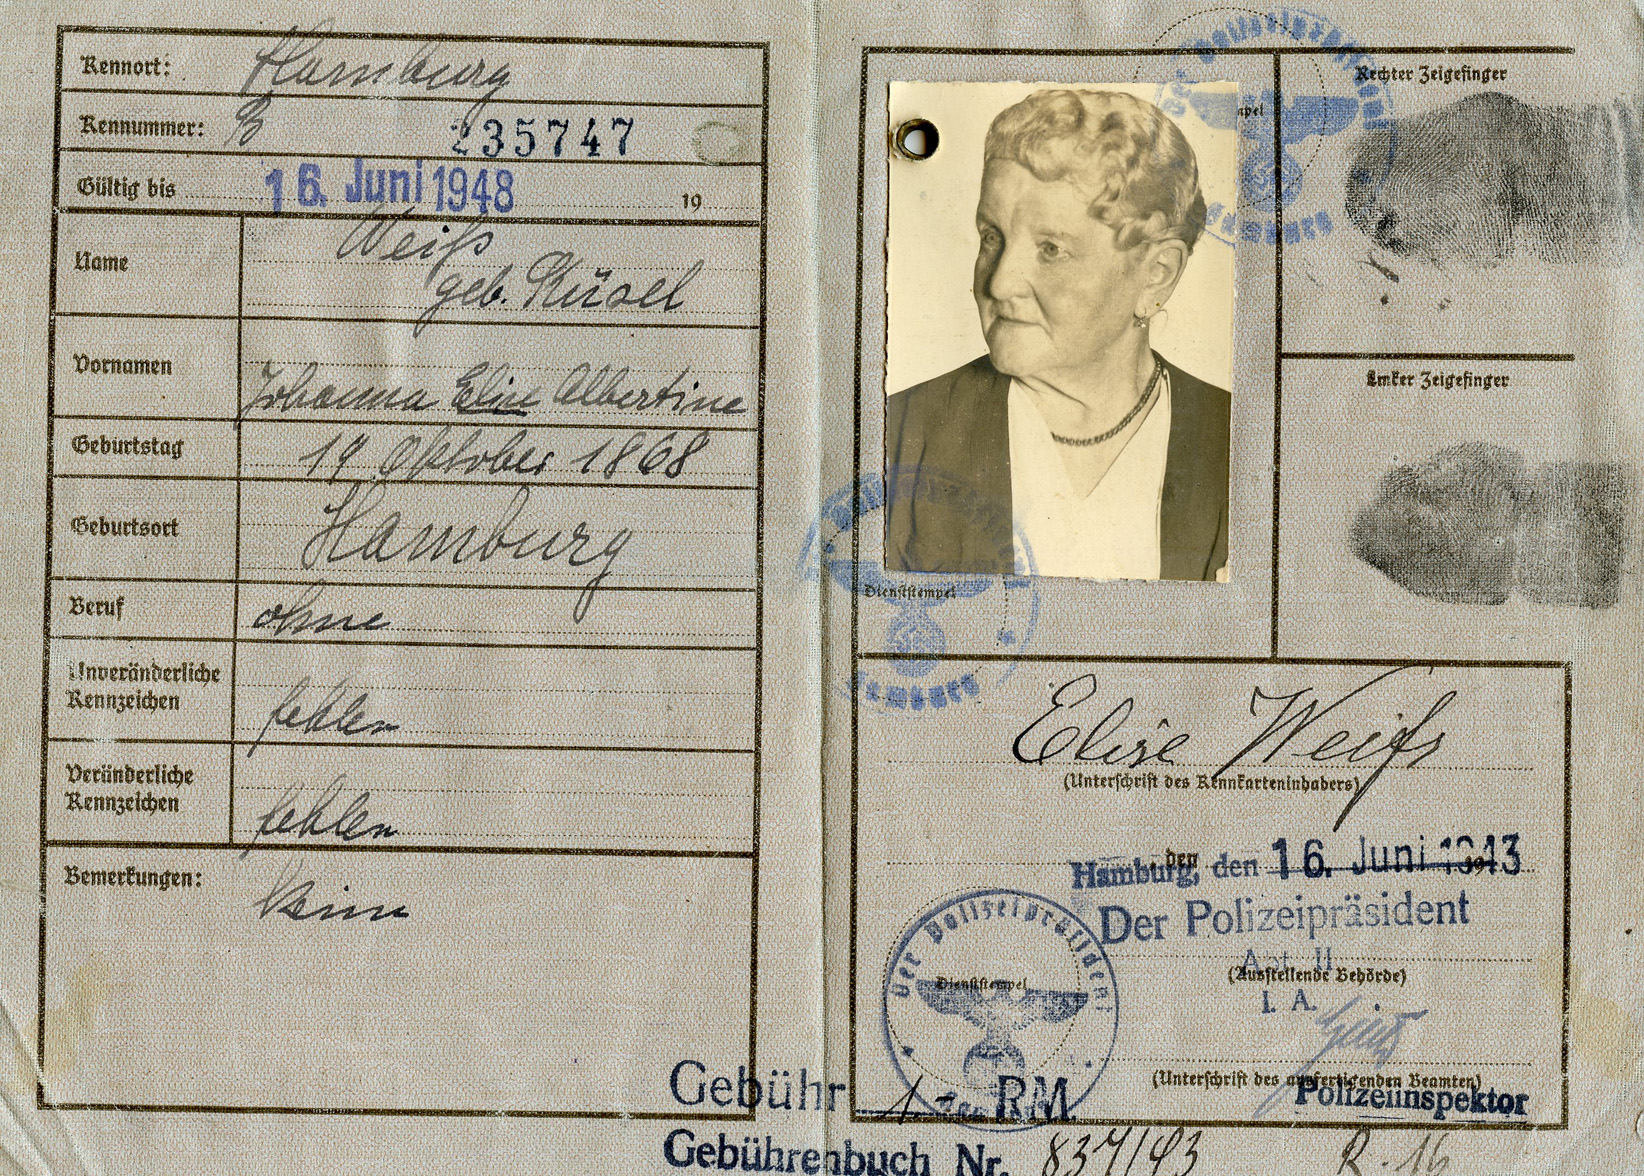 Kennort: Hamburg
Kennummer: B 235747
Gültig bis 16. Juni 1948 19
Name Weiß
geb. Küsel
Vornamen Johanna Elise Albertine
Geburtstag 19 Oktober 1868
Geburtsort Hamburg
Beruf ohne
Unveränderliche
Kennzeichen fehlen
Veränderliche
Kennzeichen fehlen
Bemerkungen: Keine
Rechter Zeigefinger
Der Polizeipräsident
Hamburg
Linker Zeigefinger
Dienststempel
Der Polizeipräsident
Hamburg
Elise Weiß
(Unterschrift des Kennkarteninhabers)
Hamburg, den 16. Juni 1943
den 19
Der Polizeipräsident
Abt. II
(Ausstellende Behörde)
I. A.
Der Polizeipräsident
Dienststempel
(Unterschrift des ausfertigenden Beamten)
Polizeiinspektor
Gebühr 1 RM.
Gebührenbuch Nr. 837/43 R. 16